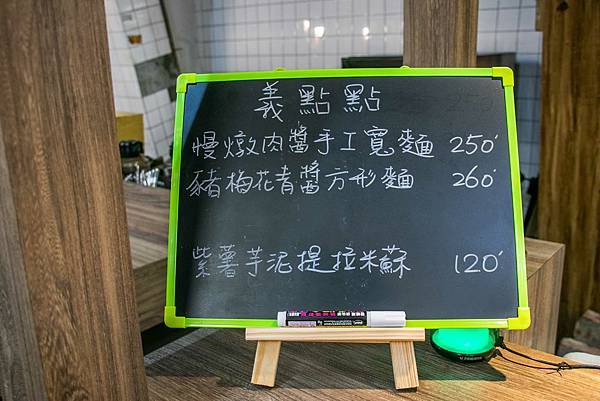 義點點
慢燉肉醬手工寬麵 250
豬梅花青醬方形麵 260
紫薯芋泥提拉米蘇 120